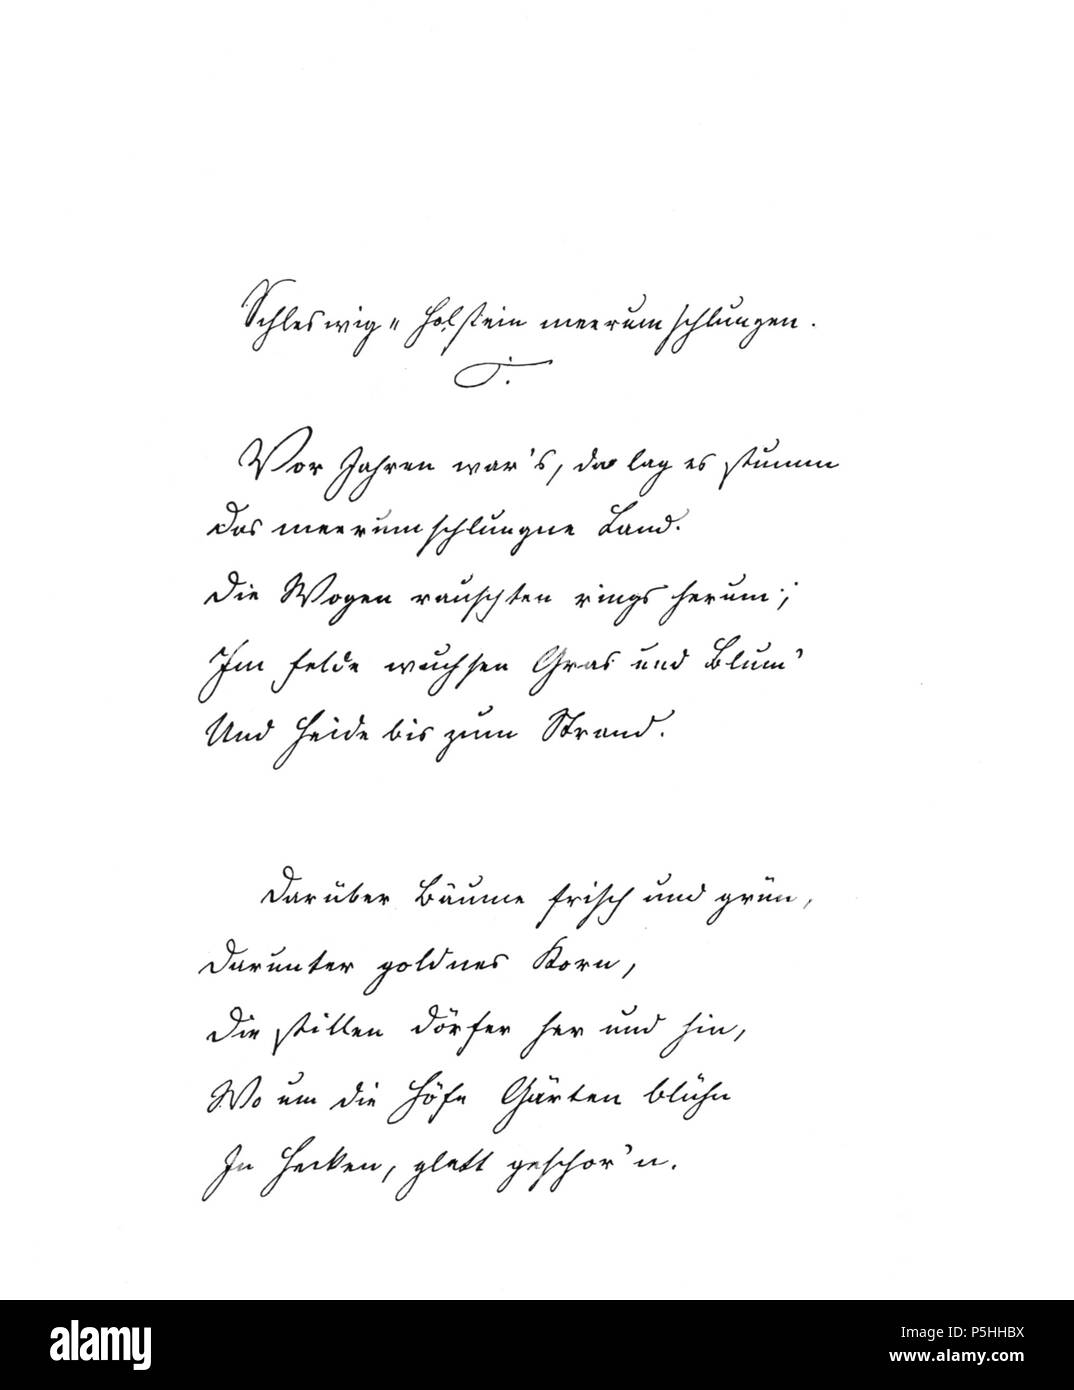 Schleswig=Holstein meerumschlungen.
I.
Vor Jahren war's, da lag es stumm
Das meerumschlungne Land.
Die Wogen rauschten rings herum;
Im Felde wuchsen Gras und Blum'
Und Heide bis zum Strand.
Darüber Bäume frisch und grün,
Darunter goldnes Korn,
Die stillen Dörfer her und hin,
Wo um die Höfe Gärten blühn
In Hecken, glatt geschor'n.
alamy
Image ID: P5HHBX
www.alamy.com